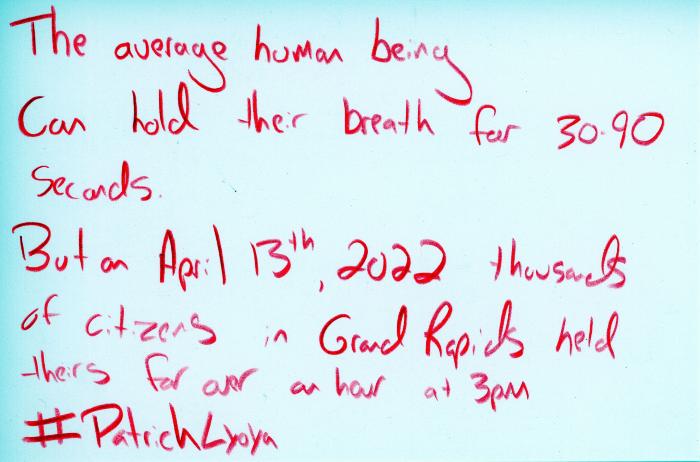 The average human being
Can hold their breath for 30-90
Seconds.
But on April 13th, 2022 thousands
of citizens in Grand Rapids held
theirs for over an hour at 3pm
#PatrickLyoya